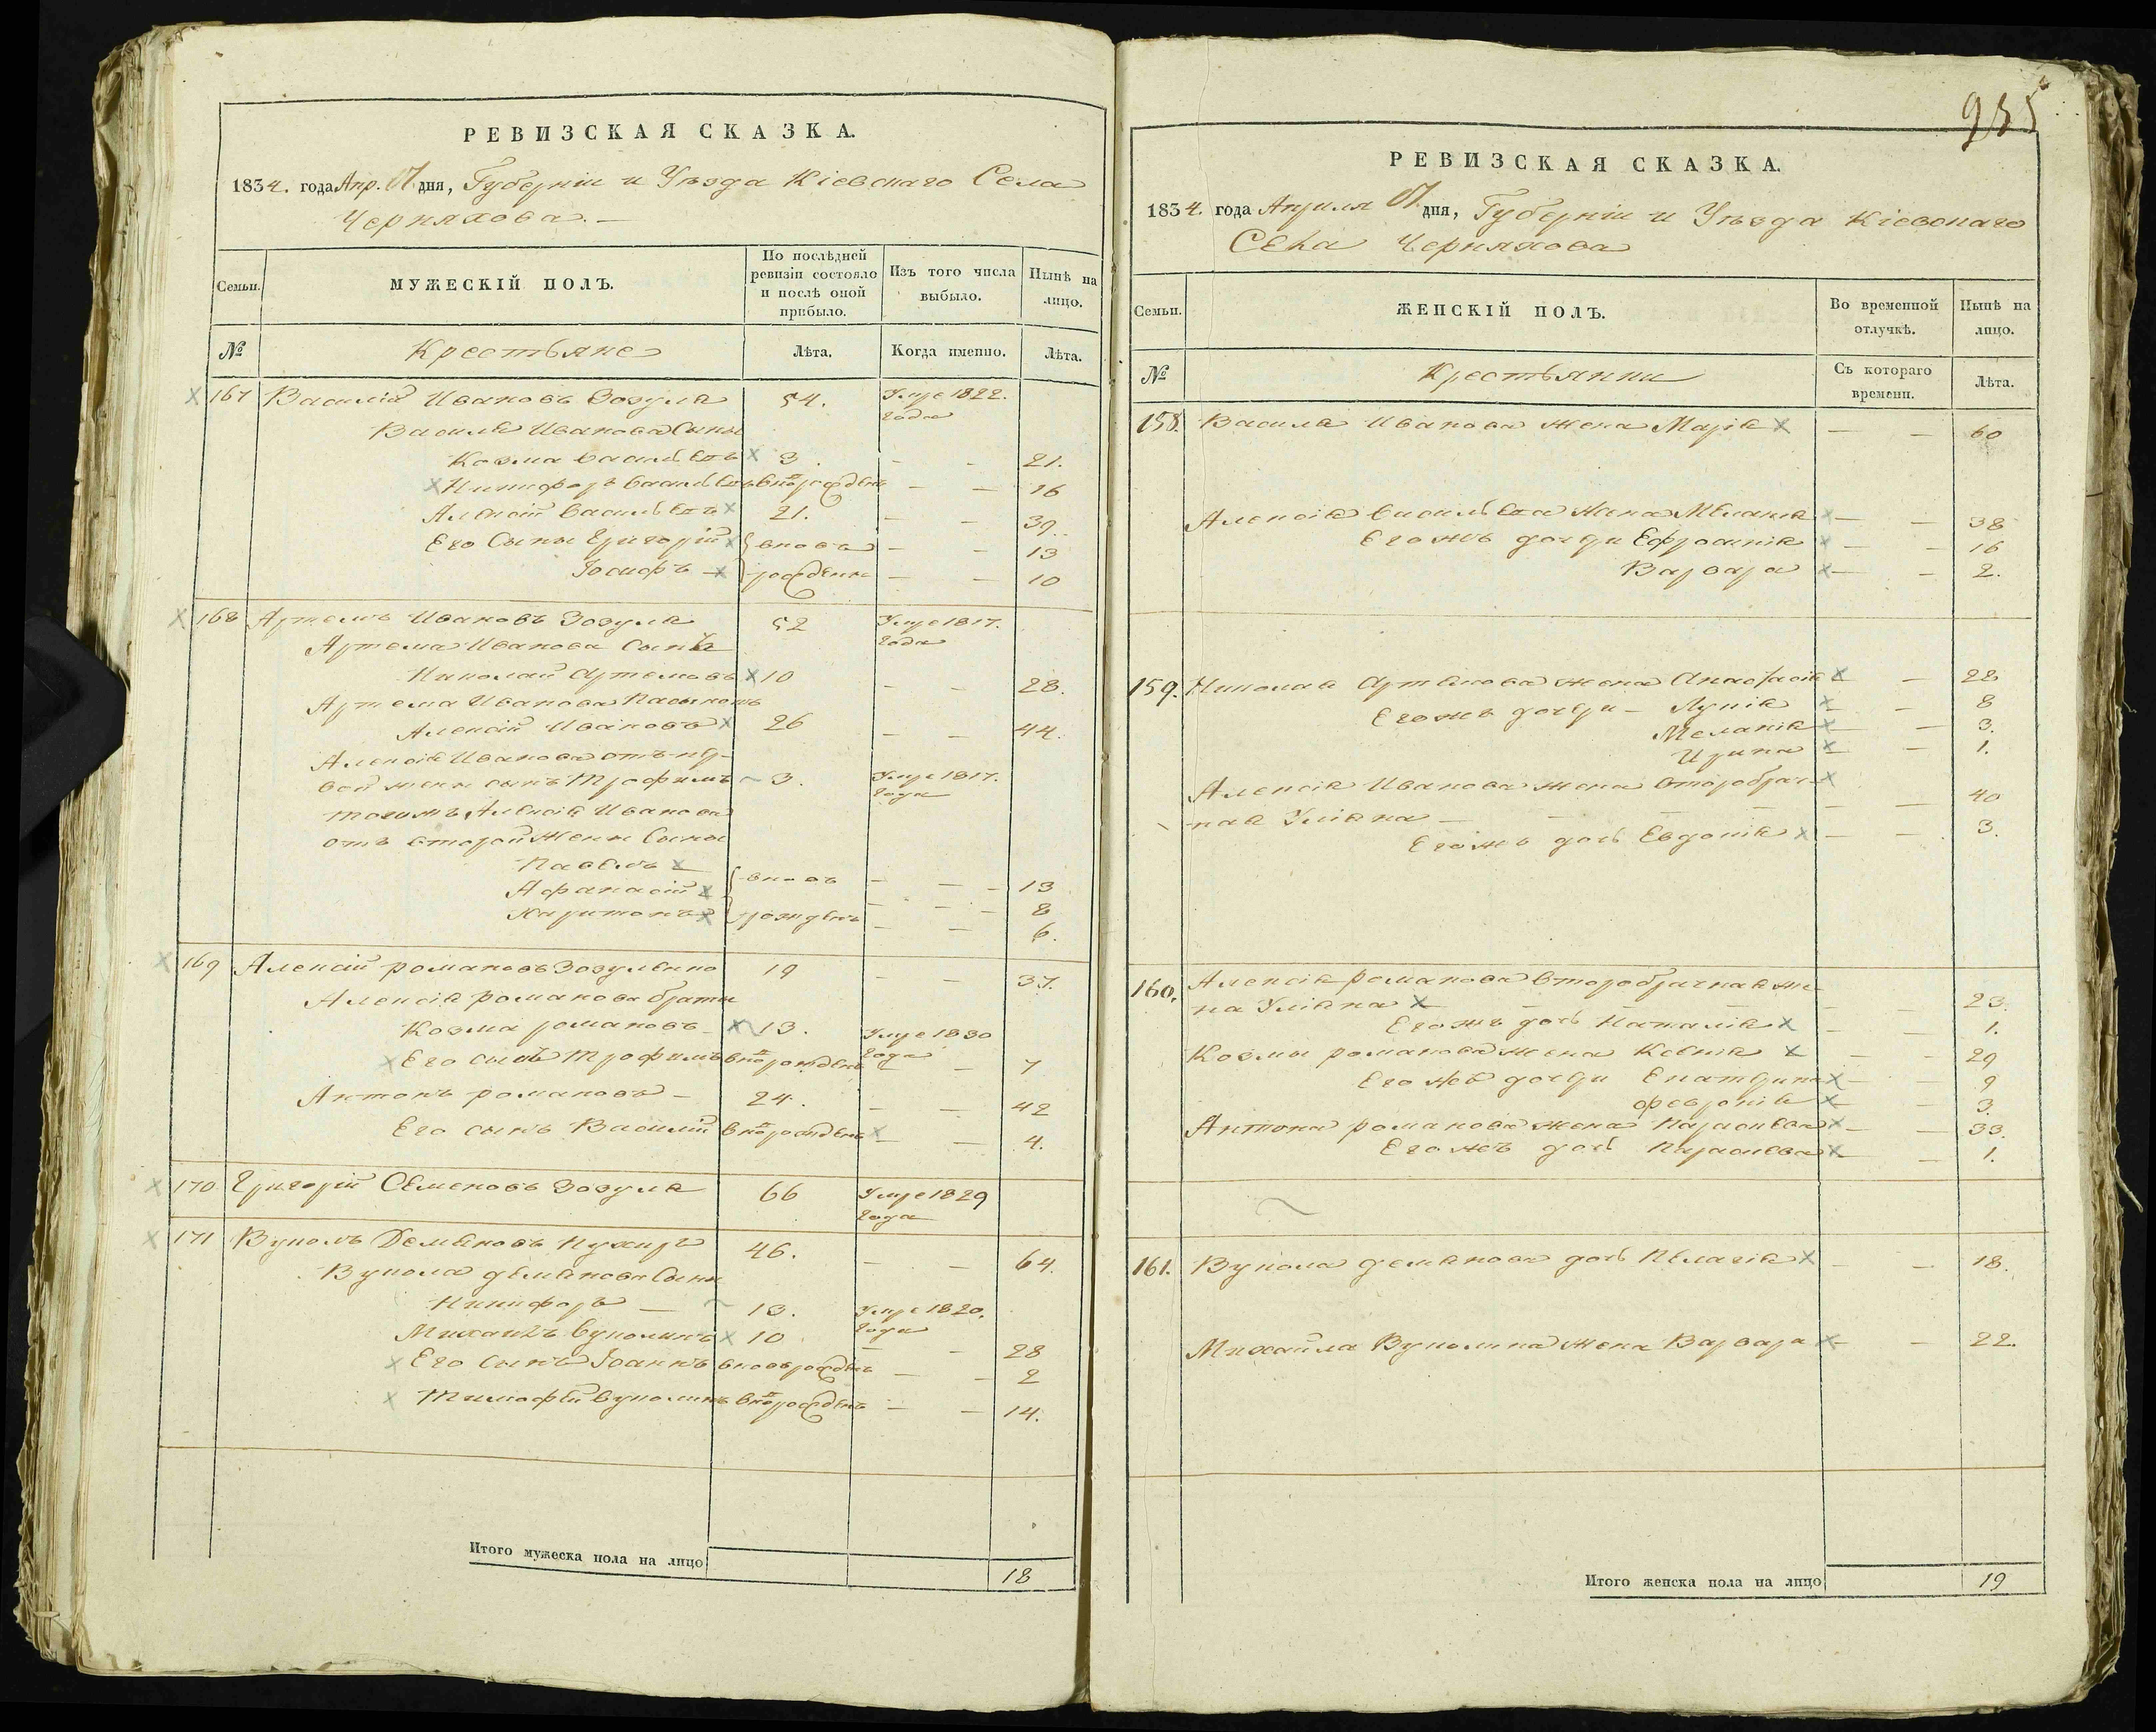 РЕВИЗСКАЯ СКАЗКА.
1834. года Апр. дня, Губерніи и Уѣзда Кіевскаго Села
Черняхова. —
Семьи.
МУЖЕСКІЙ ПОЛЪ.
По послѣдней ревизіи состояло и послѣ оной прибыло.
Изъ того числа выбыло.
Нынѣ на лицо.
№ Крестьяне Лѣта. Когда именно. Лѣта.
167 Василій Ивановъ Зозуля 54. Умре 1822. года
Василія Иванова Сыны
Козма Васильевъ 3. - - 21.
Никифоръ Васильевъ вновь рожденъ — — 16
Алексій Васильевъ 21. - - 39.
Его Сыны Григорій вновь — — 13
Іосифъ — рождены — — 10
168 Артемъ Ивановъ Зозуля 52 Умре 1817. года
Артема Иванова Сынъ
Николай Артемовъ 10 - - 28.
Артема Иванова Пасынокъ
Алексій Ивановъ 26 - - 44.
Алексія Иванова отъ пер-
вой жены сынъ Трофимъ 3. Умре 1817. года
тогожъ Алексія Иванова
отъ второй Жены Сыны
Павелъ вновь — — 13
Афанасій — — 8
Харитонъ рожденъ — — 6.
169 Алексій романовъ Зозуленко 19 - — 37.
Алексія романова браты
Козма романовъ 13. Умре 1830 года
Его сынъ Трофимъ вновь рожденъ — — 7
Антонъ романовъ — 24. — — 42
Его сынъ Василій вновь рожденъ — — 4.
170 Григорій Семеновъ Зозуля 66 Умре 1829 года
171 Вуколъ Демяновъ Пухиръ 46. — — 64.
Вукола демянова Сыны
Никифоръ — 13. Умре 1820. года
Михаилъ Вуколинъ 10 — — 28
Его Сынъ Іоаннъ вновь рожденъ — — 2
Тимофей Вуколинъ вновь рожденъ — — 14.
Итого мужеска пола на лицо 18
РЕВИЗСКАЯ СКАЗКА.
1834. года Априля дня, Губерніи и Уѣзда Кіевскаго
Села Черняхова
Семьи.
ЖЕНСКІЙ ПОЛЪ.
Во временной отлучкѣ.
Нынѣ на лицо.
№ Крестьянки Съ котораго времени. Лѣта.
158. Василя Иванова жена Марія — — 60
Алексія Васильева Жена Меланія — — 38
Его жъ дочери Ефросинія — — 16
Варвара — — 2.
159. Николая Артемова жена Анастасія — 28
Его жъ дочери — Лукія — 8
Меланія — 3.
Ирина — 1.
Алексія Иванова жена второбрач-
ная Уліяна — — — 40
Его жъ дочь Евдокія — — 3.
160. Алексія романова второбрачная же-
на Уліяна — — 23.
Его жъ дочь Наталія — — 1.
Козмы романова жена Ксенія — — 29
Его жъ дочери Екатерина — — 9
февронія — 3.
Антона романова жена Параскева — — 33.
Его жъ дочь Параскева — 1.
161. Вукола демянова дочь Пелагія — — 18.
Михайла Вуколина жена Варвара — — 22.
Итого женска пола на лицо 19